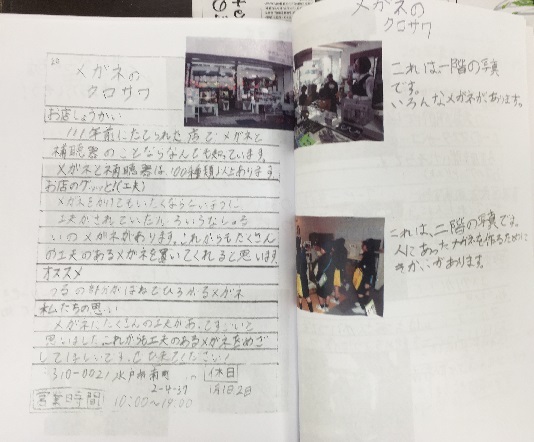 メガネの
クロサワ
お店しょうかい
111年前にたてられた店で、メガネと
補聴器のことならなんでも知っています。
メガネと補聴器は100種類以上あります。
お店のグッと!(工夫)
メガネをかけてもいたくならないように
工夫がされていたり、いろいろなしゅる
いのメガネがあります。これからもたくさん
の工夫のあるメガネを置いてくれると思います。
オススメ
つるの部分がはねてひろがるメガネ
私たちの思い
メガネにたくさんの工夫があってすごいと
思いました。これからも工夫のあるメガネをめざ
してほしいです。ぜひ来てください!
310-0021 水戸市南町
2-4-37
休日
1月1日2日
営業日時間 10:00〜19:00
メガネの
クロサワ
これは、一階の写真
です。
いろんなメガネがあります。
これは、二階の写真です。
人にあったメガネを作るために
きかいがあります。